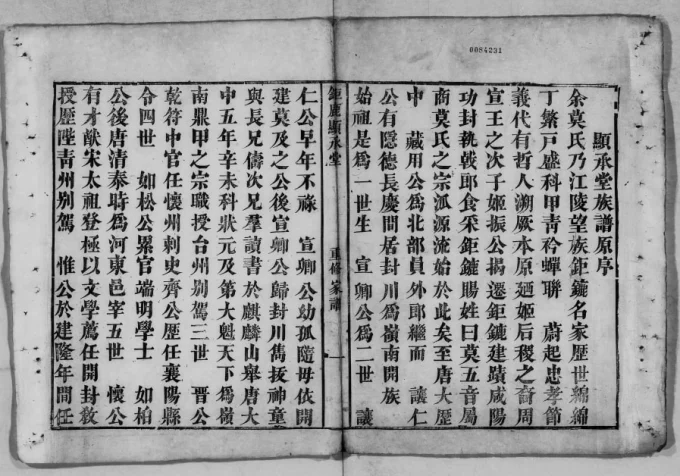 0084231
顯承堂族譜原序
余莫氏乃江陵望族鉅鏕名家歷世綿綿
丁繁戸盛科甲青衿蟬聯 蔚起忠孝節
義代有哲人溯厥本原廼姬后稷之裔周
宣王之次子姬振公揭遷鉅鏕建蹟咸陽
功封執戟郎食采鉅鏕賜姓曰莫五音屬
商莫氏之宗派源流始於此矣至唐大歷
中 藏用公爲北部員外郎繼而 讓仁
公有隱德長慶間居封川爲嶺南開族
始祖是爲一世生 宣卿公爲二世 讓
鉅鹿顯承堂 重修家譜 一
仁公早年不祿 宣卿公幼孤隨母依開
建莫及之公後宣卿公歸封川雋拔神童
與長兄儔次兄羣讀書於麒麟山舉唐大
中五年辛未科狀元及第大魁天下爲嶺
南鼎甲之宗職授台州别駕三世 晋公
乾符中官任懷州刺史齊公歷任襄陽縣
令四世 如松公累官端明學士 如柏
公後唐清泰時爲河東邑宰五世 懷公
有才猷宋太祖登極以文學薦任開封教
授歷陛青州别駕 惟公於建隆年間任